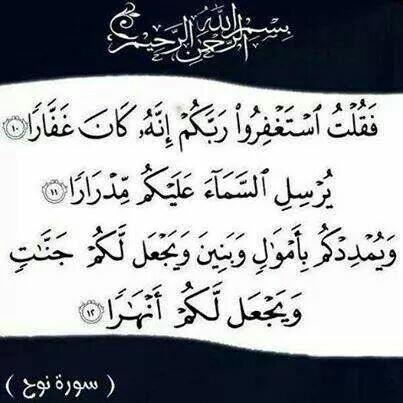 بِسْمِ اللَّهِ الرَّحْمَٰنِ الرَّحِيمِ
فَقُلْتُ ٱسْتَغْفِرُوا۟ رَبَّكُمْ إِنَّهُۥ كَانَ غَفَّارًا ١٠
يُرْسِلِ ٱلسَّمَآءَ عَلَيْكُم مِّدْرَارًا ١١
وَيُمْدِدْكُم بِأَمْوَٰلٍ وَبَنِينَ وَيَجْعَل لَّكُمْ جَنَّٰتٍ
وَيَجْعَل لَّكُمْ أَنْهَٰرًا ١٢
( سورة نوح )